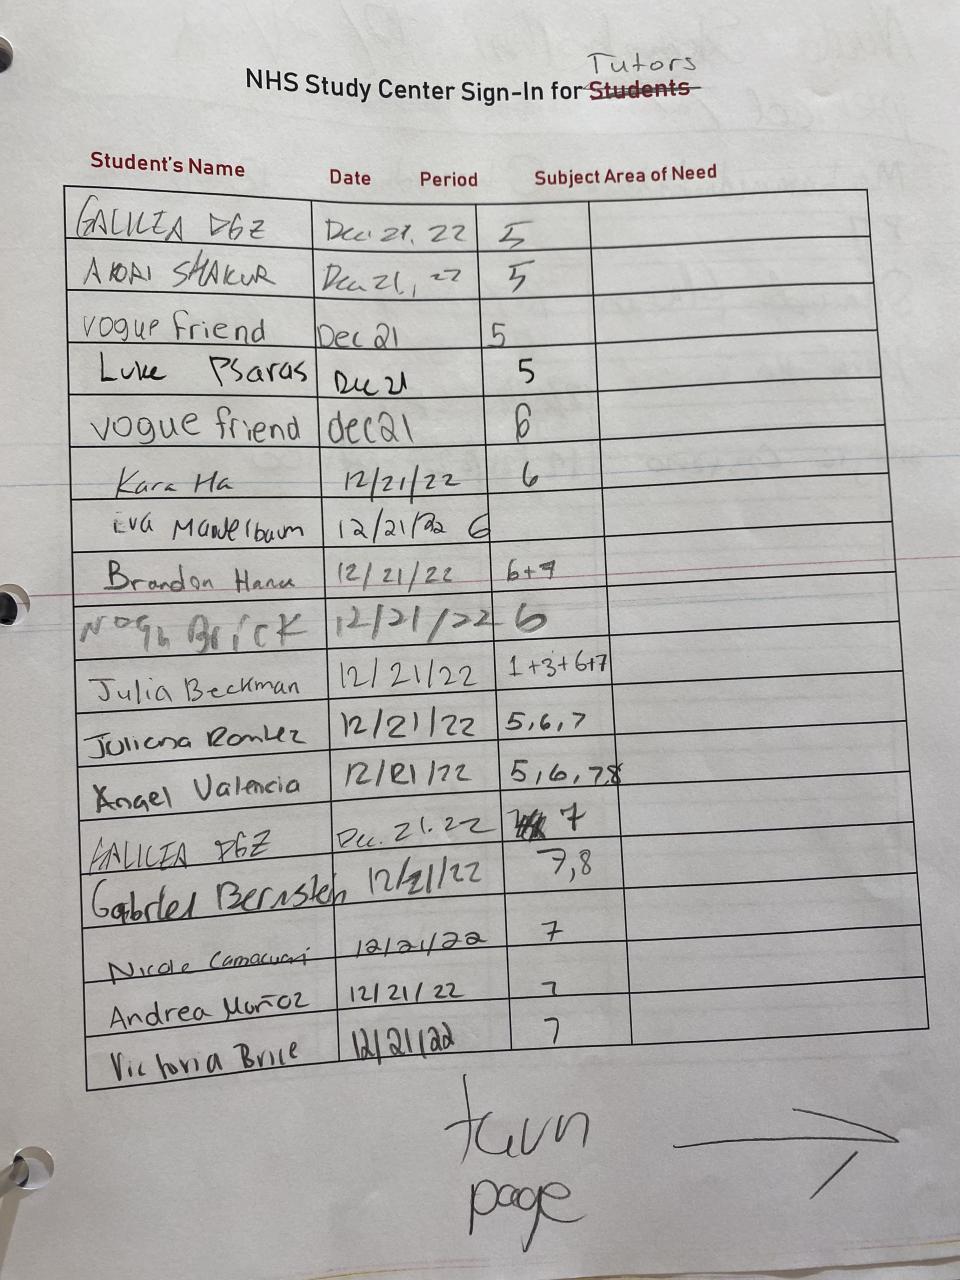 Tutors
NHS Study Center Sign-In for Students
Student's Name Date Period Subject Area of Need
GALILEA DGZ Dec. 21, 22 5
AKORI SHAKUR Dec 21, 22 5
vogue friend Dec 21 5
Luke Psaras Dec 21 5
vogue friend dec 21 6
Kara Ha 12/21/22 6
Eva Mandelbaum 12/21/22 6
Brandon 12/21/22 6+7
Noah Brick 12/21/22 6
Julia Beckman 12/21/22 1+3+6+7
Juliana Ramirez 12/21/22 5,6,7
Angel Valencia 12/21/22 5,6,7,8
GALILEA DGZ Dec. 21. 22 7
Gabriel Bernstein 12/21/22 7,8
Nicole 12/21/22 7
Andrea Muñoz 12/21/22 7
Victoria Brice 12/21/22 7
turn
page